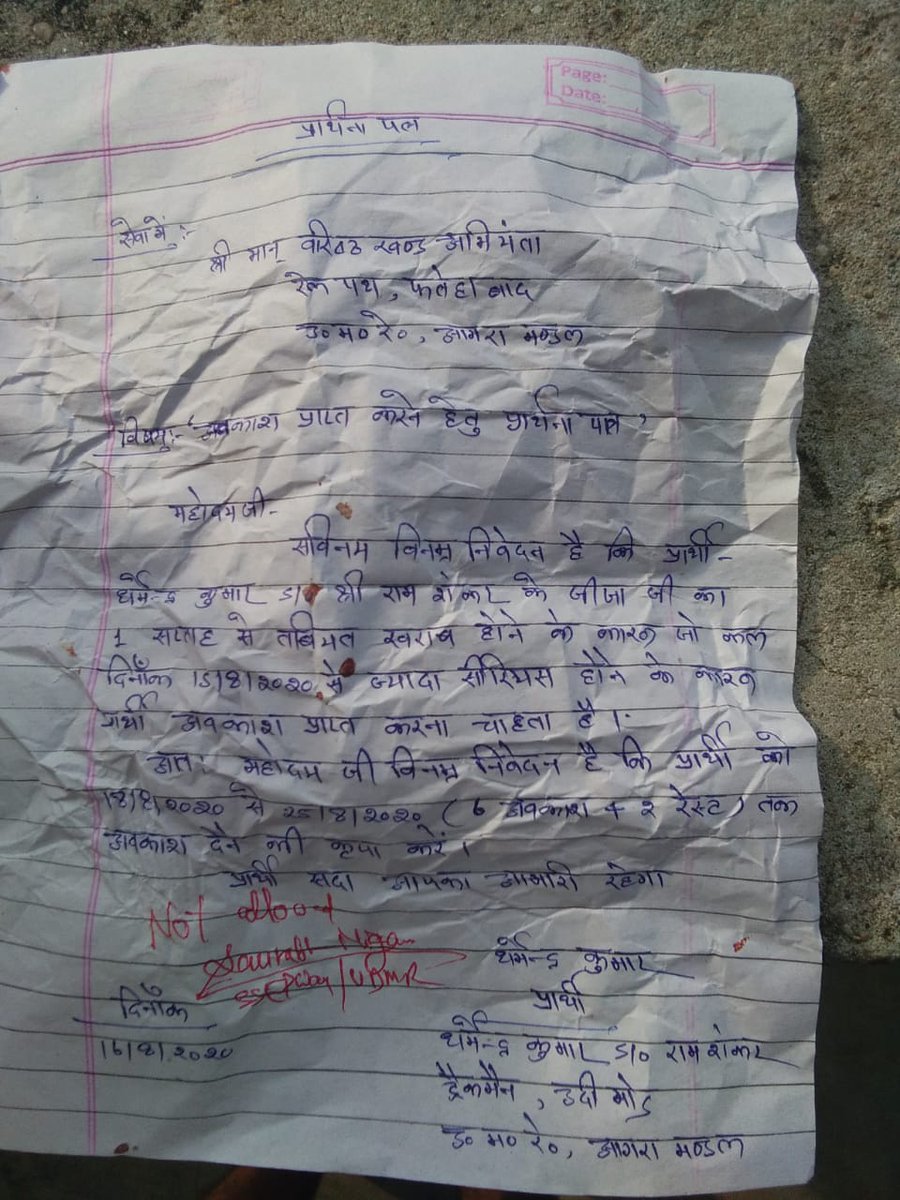 Page:
Date:
प्रार्थना पत्र
सेवा में :-
श्री मान् वरिष्ठ खण्ड अभियंता
रेल पथ, फतेहाबाद
उ० म० रे०, आगरा मण्डल
विषय:- ‘अवकाश प्राप्त करने हेतु प्रार्थना पत्र’
महोदय जी-
सविनय विनम्र निवेदन है कि प्रार्थी-
धर्मेन्द्र कुमार S/० श्री राम शंकर के जीजा जी का
1 सप्ताह से तबियत खराब होने के कारण जो कल
दिनाँक 15/8/2020 से ज्यादा सीरियस होने के कारण
प्रार्थी अवकाश प्राप्त करना चाहता है।
अतः महोदय जी विनम्र निवेदन है कि प्रार्थी को
18/8/2020 से 25/8/2020 (6 अवकाश + 2 रेस्ट) तक
अवकाश देने की कृपा करें।
प्रार्थी सदा आपका आभारी रहेगा
Not
Saurabh
/UDMR
धर्मेन्द्र कुमार
प्रार्थी
दिनाँक
16/8/2020
धर्मेन्द्र कुमार S/० राम शंकर
ट्रैकमैन, उदी मोड़
उ० म० रे०, आगरा मण्डल